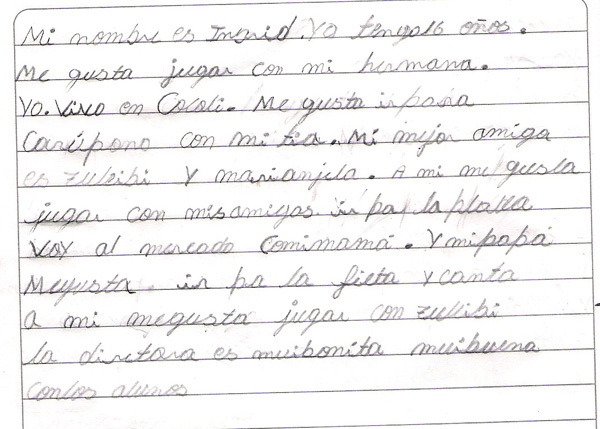 Mi nombre es Ingrid. Yo tengo16 años.
Me gusta jugar con mi hermana.
Yo. vivo en Cocoli. Me gusta ir para
Carúpano con mi tia. Mi mejor amiga
es zulibi y marianjela. A mi me gusta
jugar con misamigas ir pa la plalla
voy al mercado Comimamá. Y mipapá
Megusta. ir pa la fieta y canta
a mi megusta jugar con zulibi
la diretora es muibonita muibuena
conlos alunos